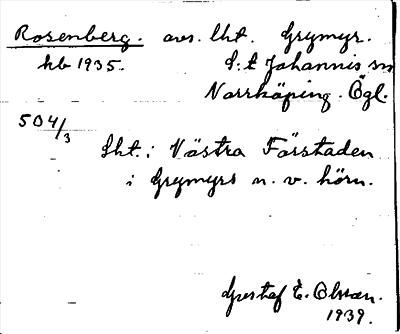 Rosenberg. avs. lht. Grymyr.
hb 1935. S:t Johannis sn
Norrköping. Ögl.
504/3
Lht. i Västra Förstaden
i Grymyrs n. v. hörn.
Gustaf E. Olsson.
1939.